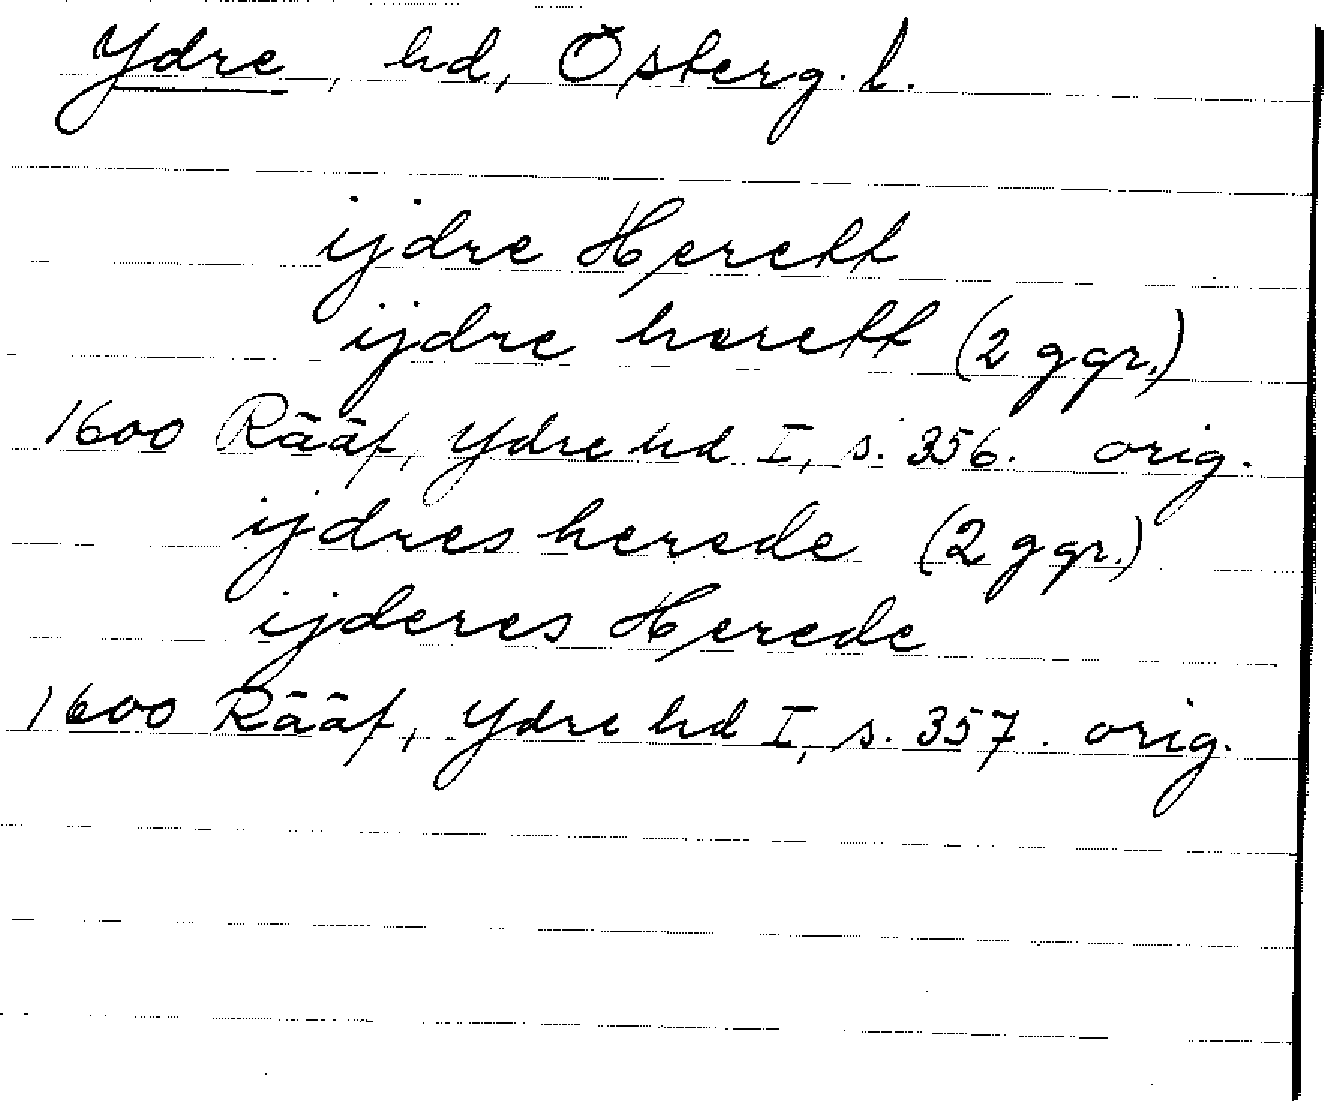 Ydre, hd, Österg. l.
ijdre Herett
ijdre herett (2 ggr.)
1600 Rääf, Ydre hd I, s. 356. orig.
ijdres herede (2 ggr.)
ijderes Herede
1600 Rääf, Ydre hd I, s. 357. orig.